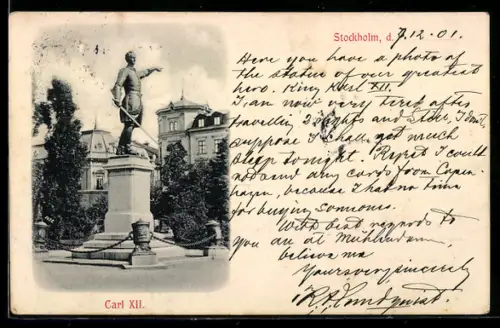 Stockholm, d. 7.12.01.
Here you have a photo of
the statue of our greatest
hero. King Karl XII.
I am now very tired after
travelling 2 nights and still, I don't
suppose I shall get much
sleep to night. Regret I could
not send any cards from Copen-
hagen, because I had no time
for buying someones.
With best regards to
you all at
believe me
Yours very sincerely
Carl XII.